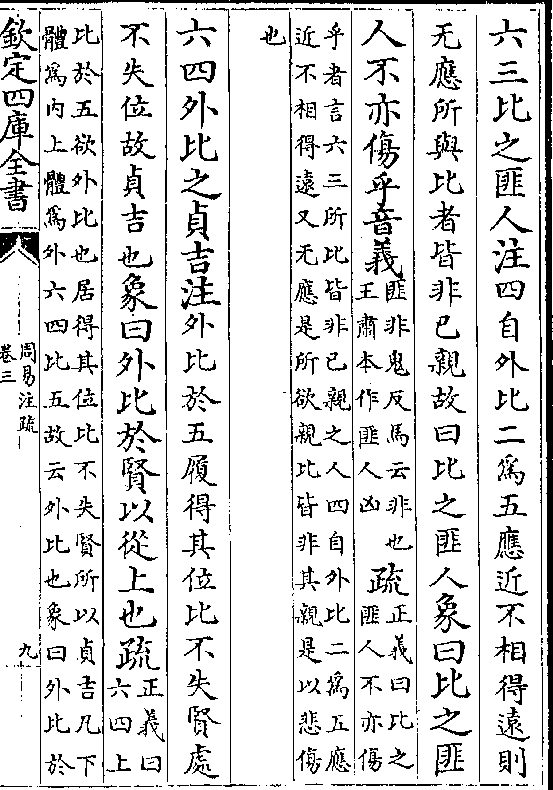 六三比之匪人注四自外比二為五應近不相得遠則
无應所與比者皆非已親故曰比之匪人象曰比之匪
人不亦傷乎音義匪非鬼反馬云非也
王肅本作匪人凶疏正義曰比之
匪人不亦傷
乎者言六三所比皆非已親之人四自外比二為五應
近不相得遠又无應是所欲親比皆非其親是以悲傷
也
六四外比之貞吉注外比於五履得其位比不失賢處
不失位故貞吉也象曰外比於賢以從上也疏正義曰
六四上
比於五欲外比也居得其位比不失賢所以貞吉凡下
體為内上體為外六四比五故云外比也象曰外比於
欽定四庫全書
周易注疏
卷三
九